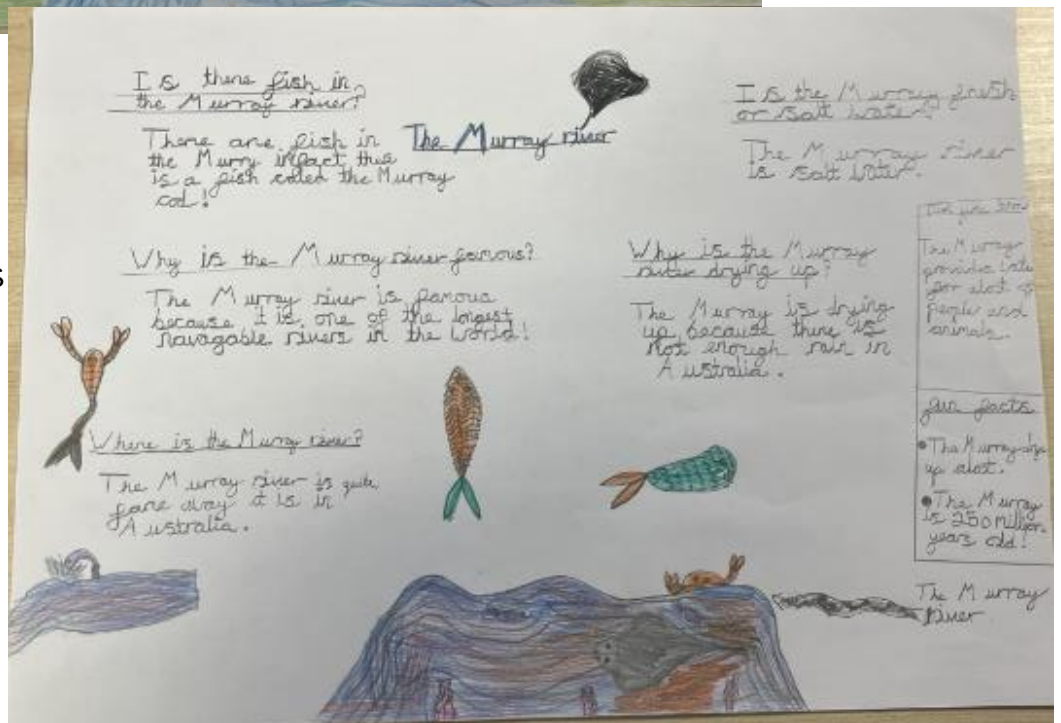 Is there fish in
the Murray river?
There are fish in
the Murry infact this
is a fish called the Murray
cod!
The Murray river
Is the Murray fresh
or salt water?
The Murray river
is salt water.
Why is the Murray river famous?
The Murray river is famous
because it is one of the longest
navagable rivers in the world!
Why is the Murray
river drying up?
The Murray is drying
up because there is
not enough rain in
Australia.
Where is the Murray river?
The Murray river is quite
fare away it is in
Australia.
The Murray
provides
for alot of
people and
animals.
fun facts
The Murray
up alot.
The Murray
is 250 million
years old!
The Murray
River
s